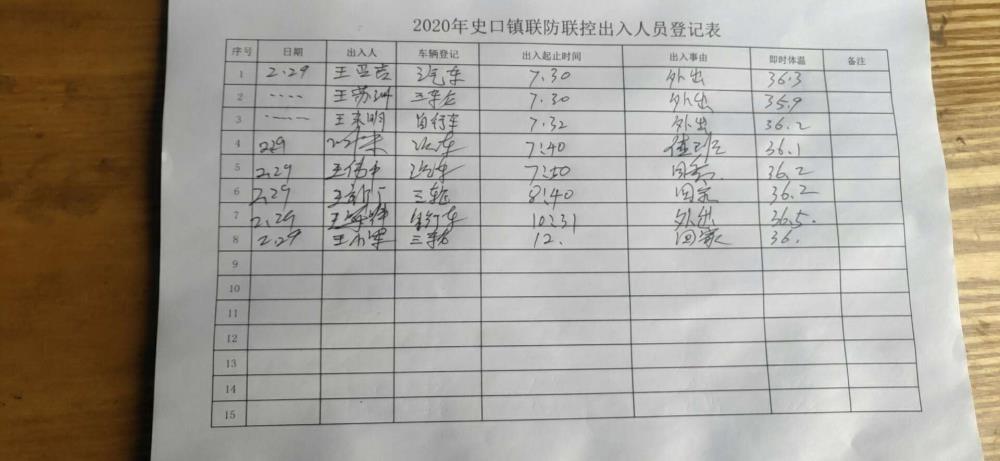 2020年史口镇联防联控出入人员登记表
序号 日期 出入人 车辆登记 出入起止时间 出入事由 即时体温 备注
1 2.29 王亚吉 汽车 7.30 外出 36.3
2 ---- 王苏洲 三车 7.30 外出 35.9
3 ---- 王来明 自行车 7.32 外出 36.2
4 2.29 汽车 7:40 值班 36.1
5 2.29 王伟中 汽车 7:50 回家 36.2
6 2.29 三轮 8:40 回家 36.2
7 2.29 自行车 10:31 外出 36.5.
8 2.29 王小军 三轮 12. 回家 36.
9
10
11
12
13
14
15